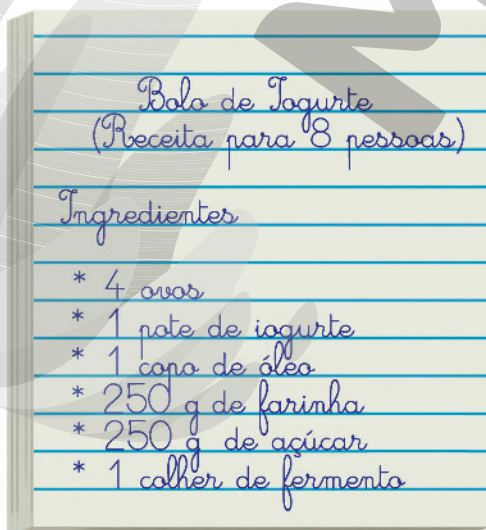 Bolo de Iogurte
(Receita para 8 pessoas)
Ingredientes
* 4 ovos
* 1 pote de iogurte
* 1 copo de óleo
* 250 g de farinha
* 250 g de açúcar
* 1 colher de fermento